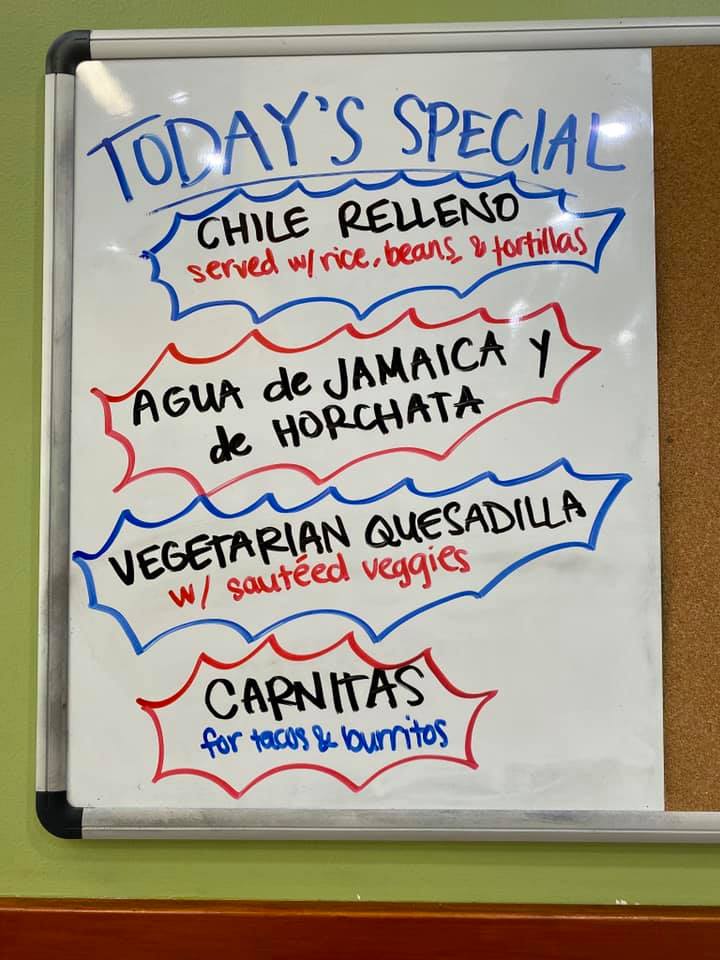 TODAY'S SPECIAL
CHILE RELLENO
served w/ rice, beans, & tortillas
AGUA de JAMAICA Y
de HORCHATA
VEGETARIAN QUESADILLA
w/ sautéed veggies
CARNITAS
for tacos & burritos